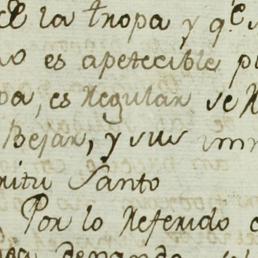 la tropa y qe
es apetecible
es Regular se
Bejar, y sus
ritu Santo
Por lo Referido